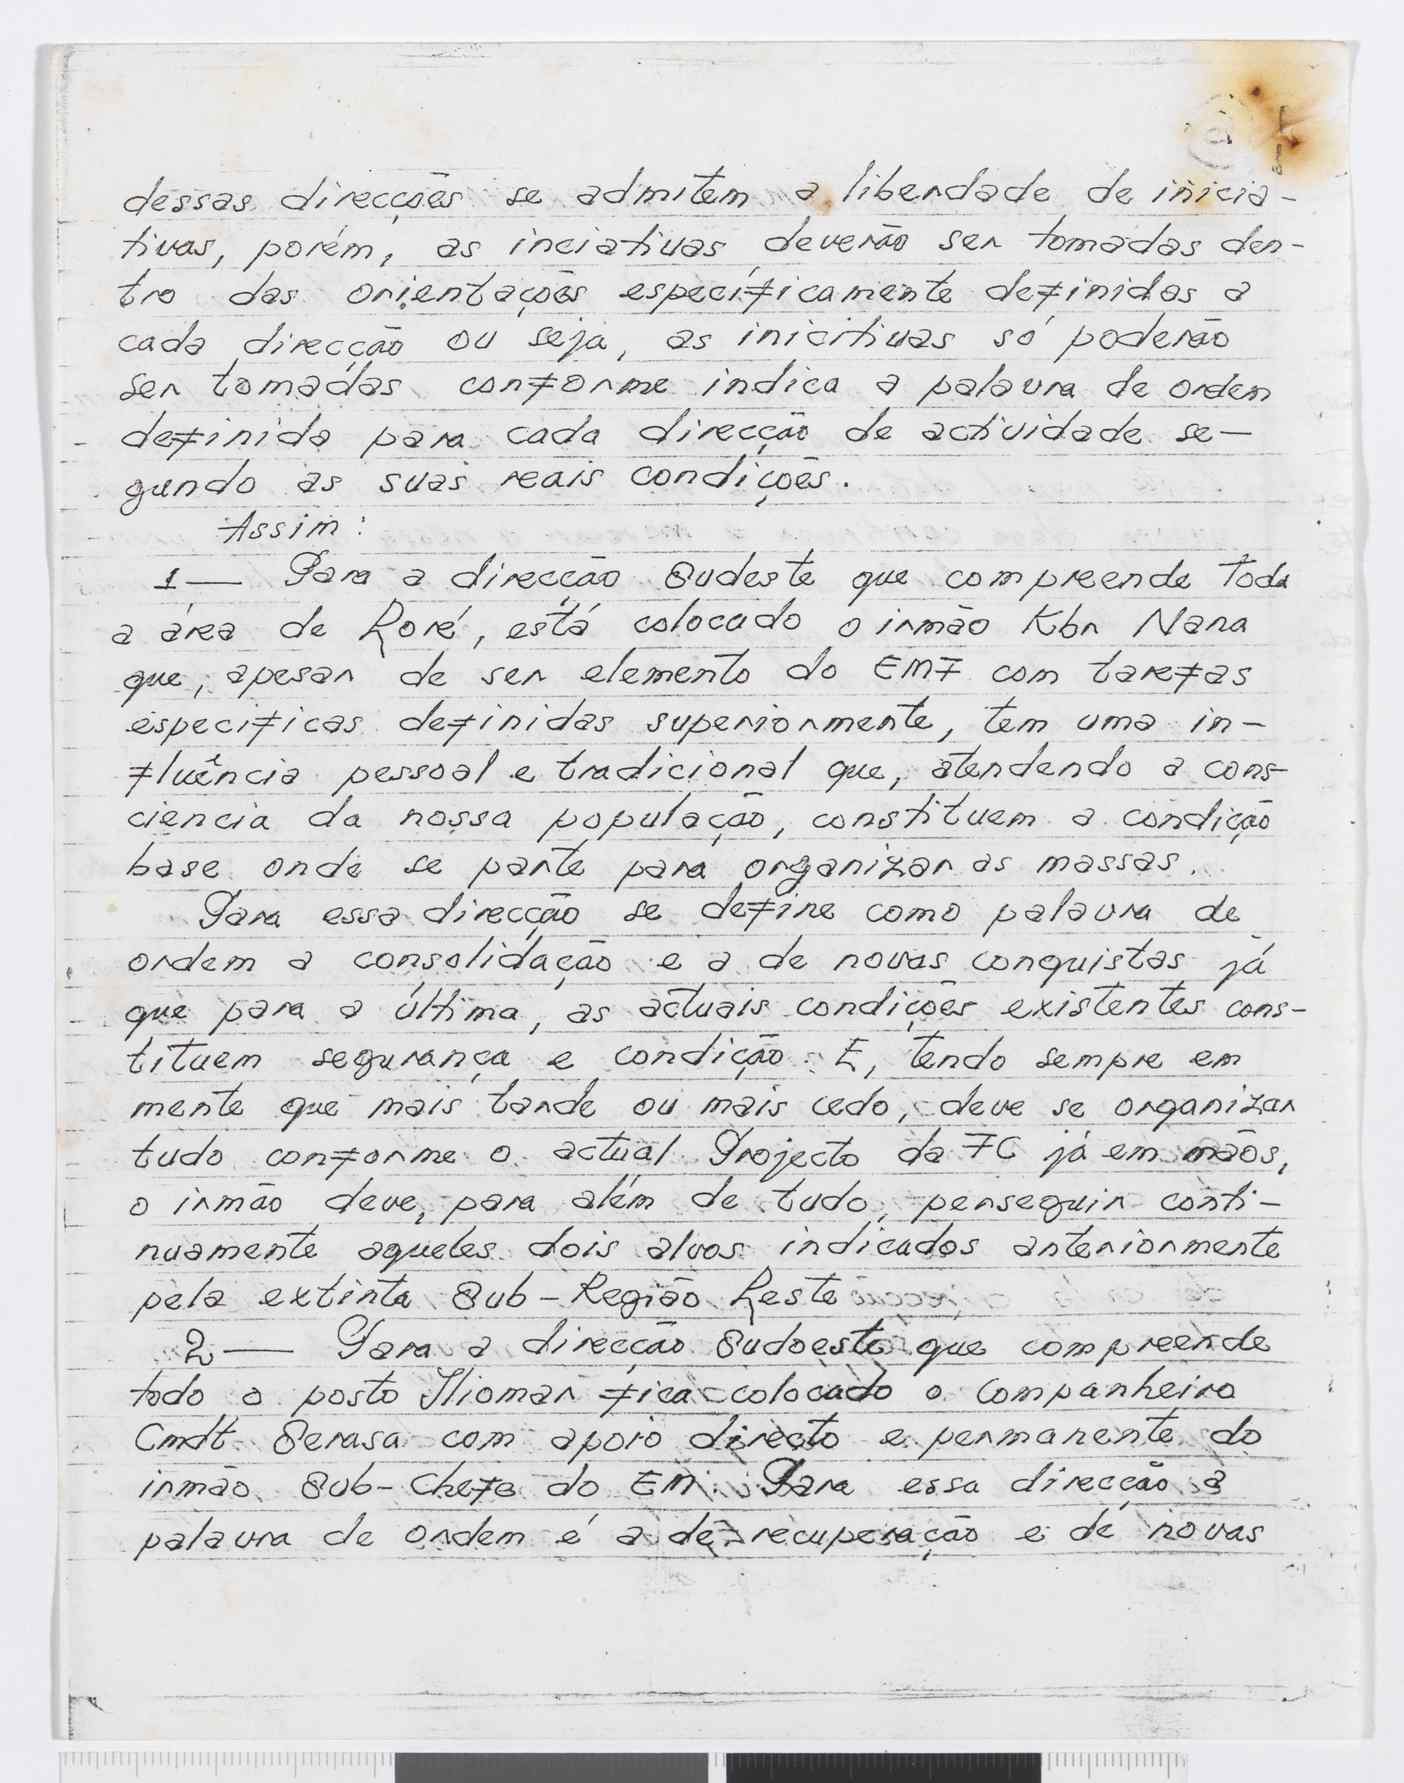 dessas direcções se admitem a liberdade de inicia-
tivas, porém, as inciativas deverão ser tomadas den-
tro das orientações específicamente definidas a
cada direcção ou seja, as inicitivas só poderão
ser tomadas conforme indica a palavra de ordem
definida para cada direcção de actividade se-
gundo as suas reais condições.
Assim:
1— Para a direcção Sudeste que compreende toda
a área de Loré, está colocado o irmão Kbr Nana
que, apesar de ser elemento do EMF com tarefas
especificas definidas superiormente, tem uma in-
fluência pessoal e tradicional que, atendendo a cons-
ciencia da nossa população, constituem a condição
base onde se parte para organizar as massas.
Para essa direcção se define como palavra de
ordem a consolidação e a de novas conquistas já
que para a última, as actuais condições existentes cons-
tituem segurança e condição. E, tendo sempre em
mente que mais tarde ou mais cedo, deve se organizar
tudo conforme o actual Projecto da FC já em mãos,
o irmão deve, para além de tudo, perseguir conti-
nuamente aqueles dois alvos indicados anteriormente
pela extinta Sub-Região Leste
2— Para a direcção Sudoeste que compreende
todo o posto Iliomar fica colocado o Companheiro
Cmdt Serasa com apoio directo e permanente do
irmão Sub-Chefe do EM. Para essa direcção a
palavra de ordem é a de recuperação e de novas